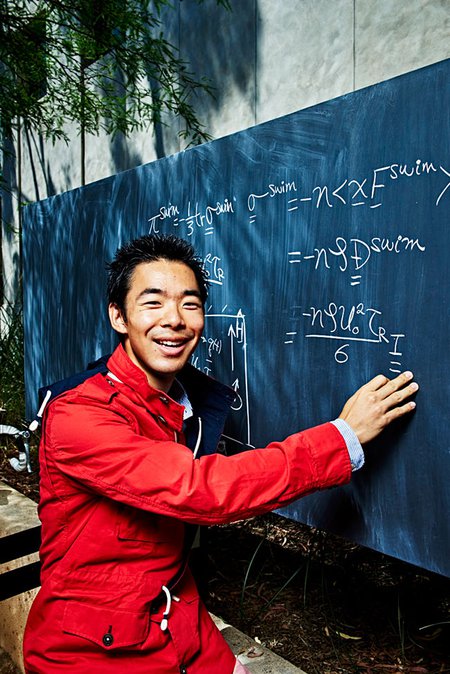 π^swim = -1/3 tr σ^swim, σ^swim = -n<x F^swim>
= -n ζ D^swim
= -n ζ U₀² τ_R / 6 I
τ_R
H